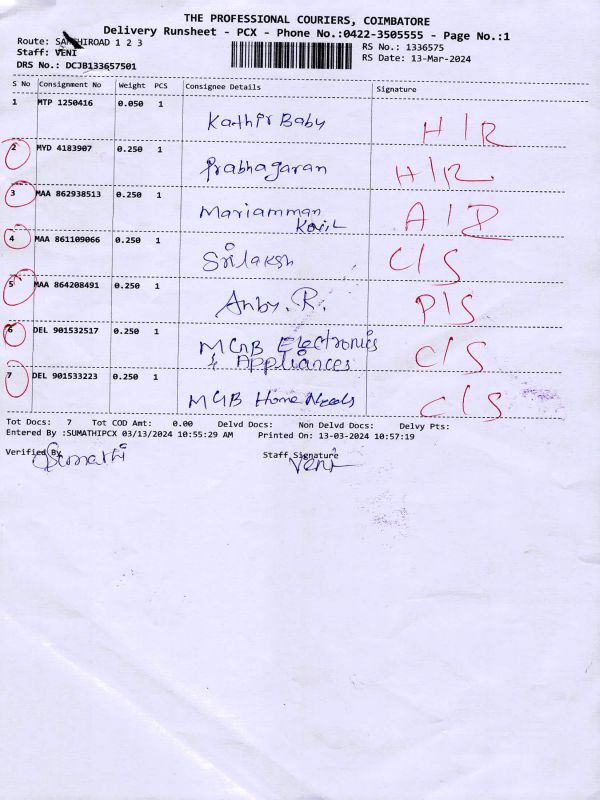 THE PROFESSIONAL COURIERS, COIMBATORE
Delivery Runsheet - PCX - Phone No.:0422-3505555 - Page No.:1
Route: ROAD 1 2 3
RS No.: 1336575
Staff: VENI
RS Date: 13-Mar-2024
DRS No.: DCJB133657501
S No Consignment No Weight PCS Consignee Details Signature
1 MTP 1250416 0.050 1 Kathir Baby H/R
2 MYD 4183907 0.250 1 Prabhagaran H/R
3 MAA 862938513 0.250 1 Mariamman
Kovil
4 MAA 861109066 0.250 1 Srilaksh C/S
5 MAA 864208491 0.250 1 Anby. R. P/S
6 DEL 901532517 0.250 1 MGB Electronics
& Appliances C/S
7 DEL 901533223 0.250 1 MGB Home Needs C/S
Tot Docs: 7 Tot COD Amt: 0.00 Delvd Docs: Non Delvd Docs: Delvy Pts:
Entered By :SUMATHIPCX 03/13/2024 10:55:29 AM Printed On: 13-03-2024 10:57:19
Verified By Staff Signature
Sumathi Veni